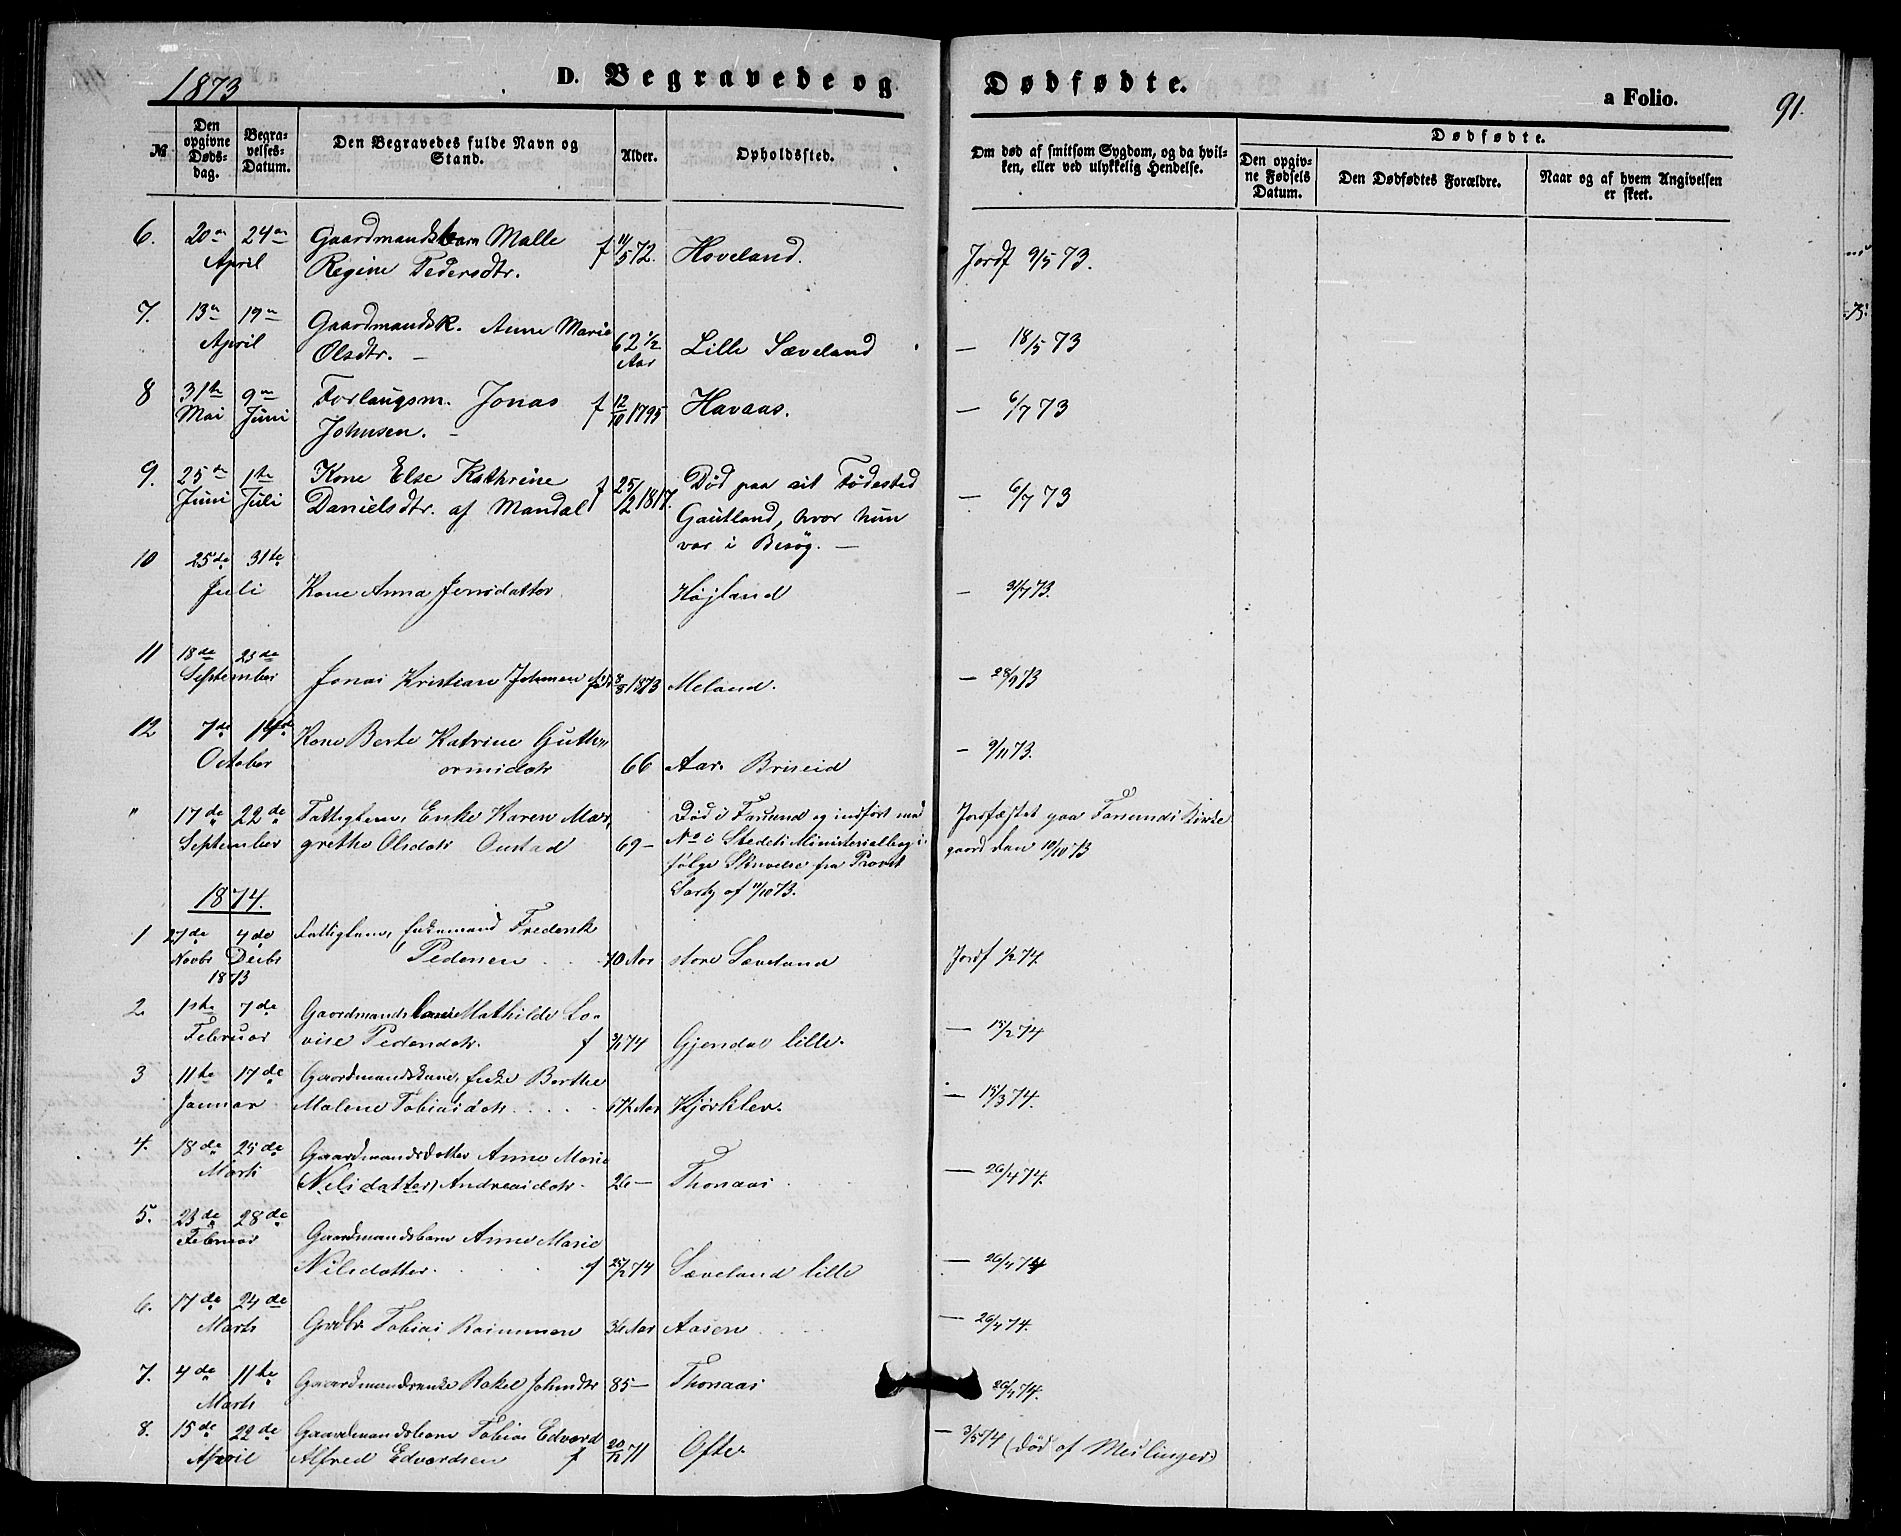 1873
D. Begravede og Dødfødte.
a Folio. 91.
№
Den opgivne Døds-dag.
Begra-velses-Datum.
Den Begravedes fulde Navn og Stand.
Alder.
Opholdssted.
Om død af smitsom Sygdom, og da hvil-ken, eller ved ulykkelig Hendelse.
Dødfødte.
Den opgiv-ne Fødsels Datum.
Den Dødfødtes Forældre.
Naar og af hvem Angivelsen er skeet.
6. 20n 24n Gaardmandsbarn Malle f 11/5 72. Hoveland. Jordf 9/5 73.
April Regine Pedersdtr.
7. 13n 19n Gaardmandsk. Anne Marie 62 1/2 Lille Sæveland — 18/5 73
April Olsdtr. — Aar
8 31te 9n Forlaugsm. Jonas f 12/10 1795 Havaas. — 6/7 73
Mai Juni Johnsen. —
9. 25de 1te Kone Else Kathrine f 25/12 1817. Død paa sit Fødested — 6/7 73
Juni Juli Danielsdtr. af Mandal Gautland, hvor hun
var i Besøg. —
10 25de 31te
Juli Kone Anna Jensdatter Højland — 31/7 73.
11 18de 23de
September Jonas Kristian Johnsen 8/8 1873 Meland. — 28/9 73
12 7de 14de Kone Berte Katrine Gutt- — 9/11 73.
October ormsdatr 66 Aar. Briseid
" 17de 22de Fattiglem, Enke Karen Mar- Død i Farsund og indført med Jordfæstet paa Farsunds Kirke
September grethe Olsdatr Oustad 69 — No i Stedets Ministerialbog i gaard den 10/10 73
følge Skrivelse fra Provst
af 11/10 73.
1874.
1 27de 4de Fattiglem, Enkemand Frederik
Novbr Decbr Pedersen 70 Aar store Sæveland Jordf 1/2 74.
1873
2. 1ste 7de Gaardmandsbarn Mathilde Lo-
Februar vise Pedersdatr. f 3/1 74 Gjendal lille. — 15/2 74
3 11te 17de Gaardmandskone, Enke Berthe
Januar Malene Tobiasdatr. Aar Kjørklev. — 15/3 74.
4. 18de 25de Gaardmandsdatter Anne Marie
Marts Nilsdatter) Andreasdatr. 26 — Thonaas — 26/4 74.
5. 23de 28de
Februar Gaardmandsbarn Anne Marie
Nilsdatter. f 25/2 74 Sæveland lille — 26/4 74
6. 17de 24de
Marts Grdbr. Tobias Rasmussen 36 Aar Aasen — 26/4 74.
7. 4de 11te Gaardmandsenke Rakel Johnsdtr 85 — Thonaas 26/4 74.
Marts
8. 15de 22de Gaardmandsbarn Tobias Edvard — 3/5 74 (død af Meslinger)
April Alfred Edvardsen f 20/12 71 Ofte.